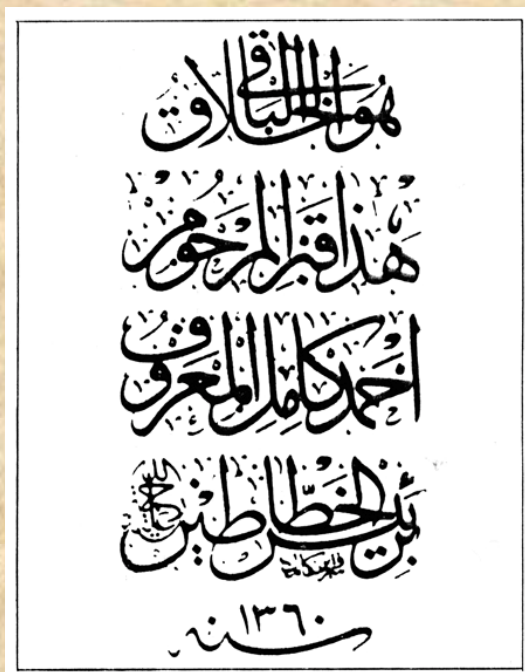 هُوَ الخَلّاقُ البَاقِي
هٰذَا قَبْرُ المَرْحُومِ
اَحْمَدْ كَامِلِ المَعْرُوفِ
بِرَئِيسِ الخَطَّاطِينَ رحمه الله
سنه ١٣٦٠